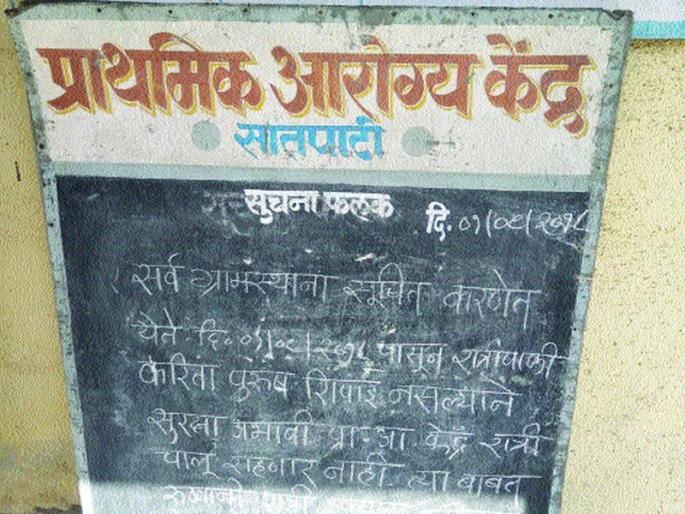 प्राथमिक आरोग्य केंद्र
सातपाटी
सुचना फलक
दि. ०१/०८/२०१८
सर्व ग्रामस्थांना सूचित करणेत
येते दि. ०१/०८/२०१८ पासून रात्रीपाळी
करिता पुरुष शिपाई नसल्याने
सुरक्षा अभावी प्रा.आ केंद्र रात्री
चालू राहणार नाही. त्या बाबत
रुग्णांनी